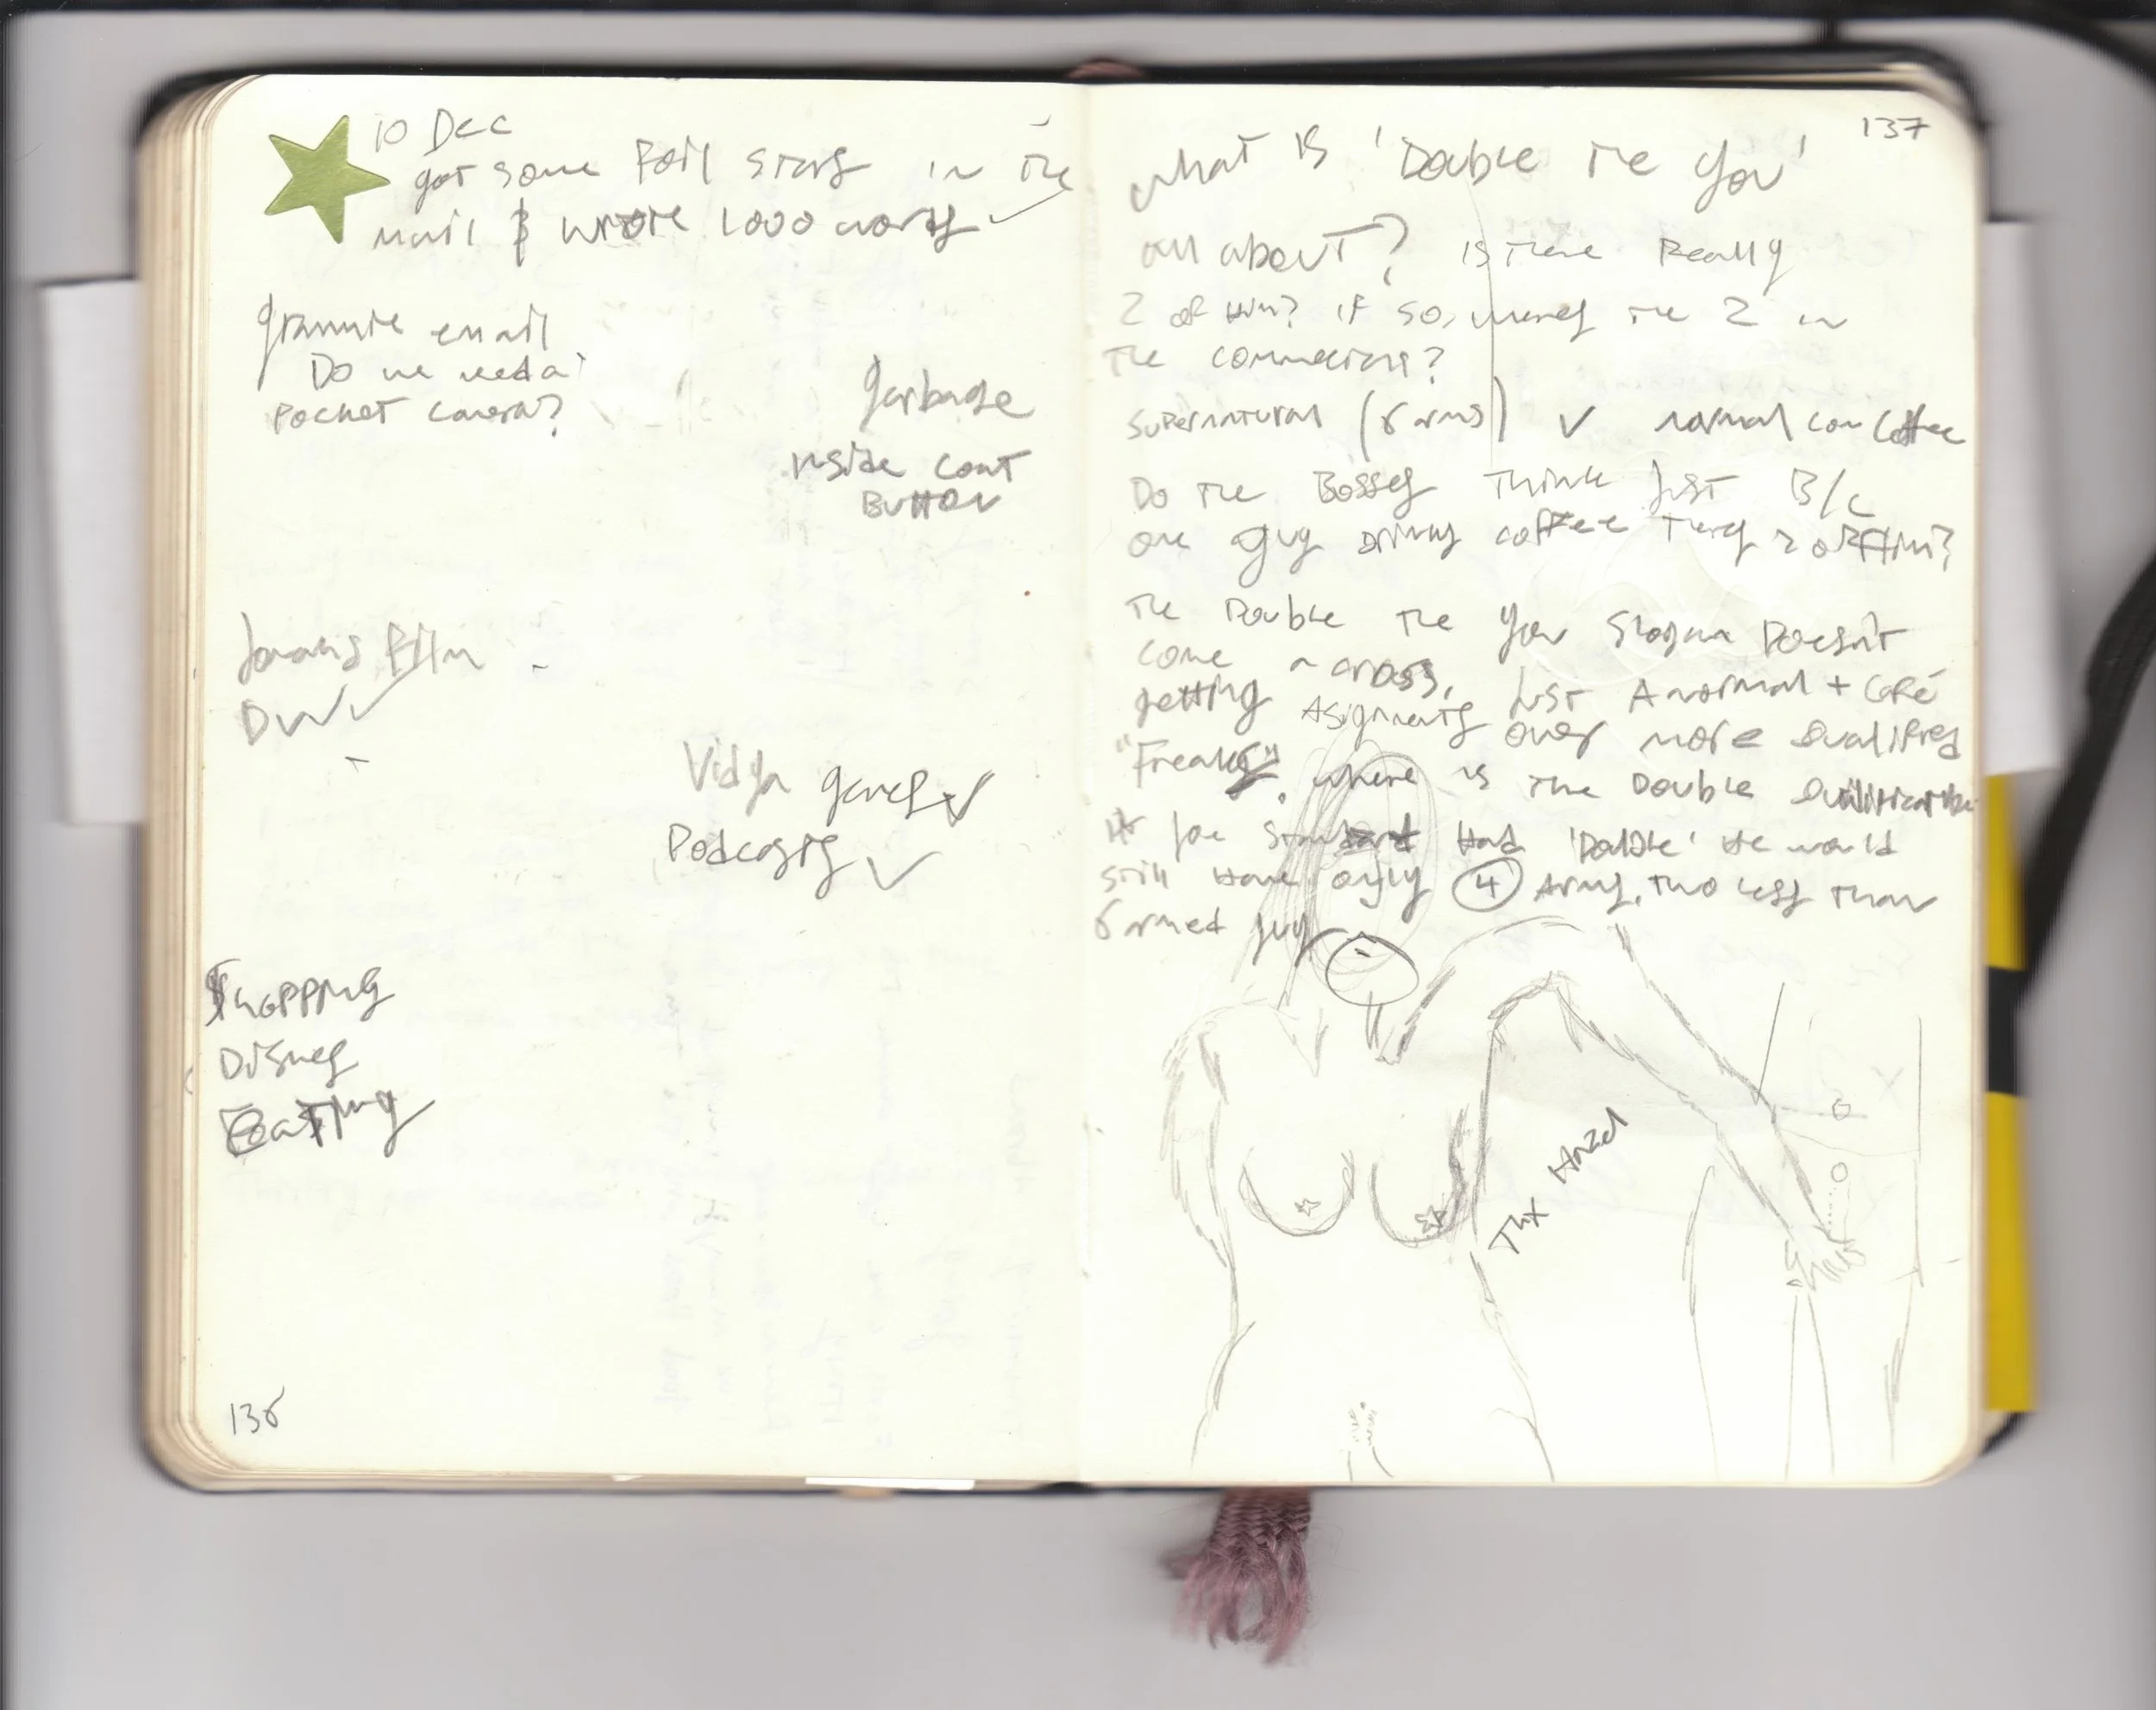 10 Dec
got some Foil stars in the
mail & wrote 1000 words
grannie email
Do we need a
pocket camera?
garbage
inside coat
Button
film
DW
Vidya games
Podcasts
Shopping
Disney
Eating
136
137
What is 'Double the You'
all about? is there Really
2 of Him? if so, wheres the 2 in
the commercials?
Supernatural (6 arms) v normal
Do the Bosses think just B/c
one guy drinks coffee theres 2 of Him?
The Double the You Slogan Doesn't
come across, just A normal + Café
getting Asignments over more Qualified
"Freaks", where is the Double
if Joe Standard Had 'Double' He would
still Have only 4 Arms, two less than
6 armed guy
Thx Hazel